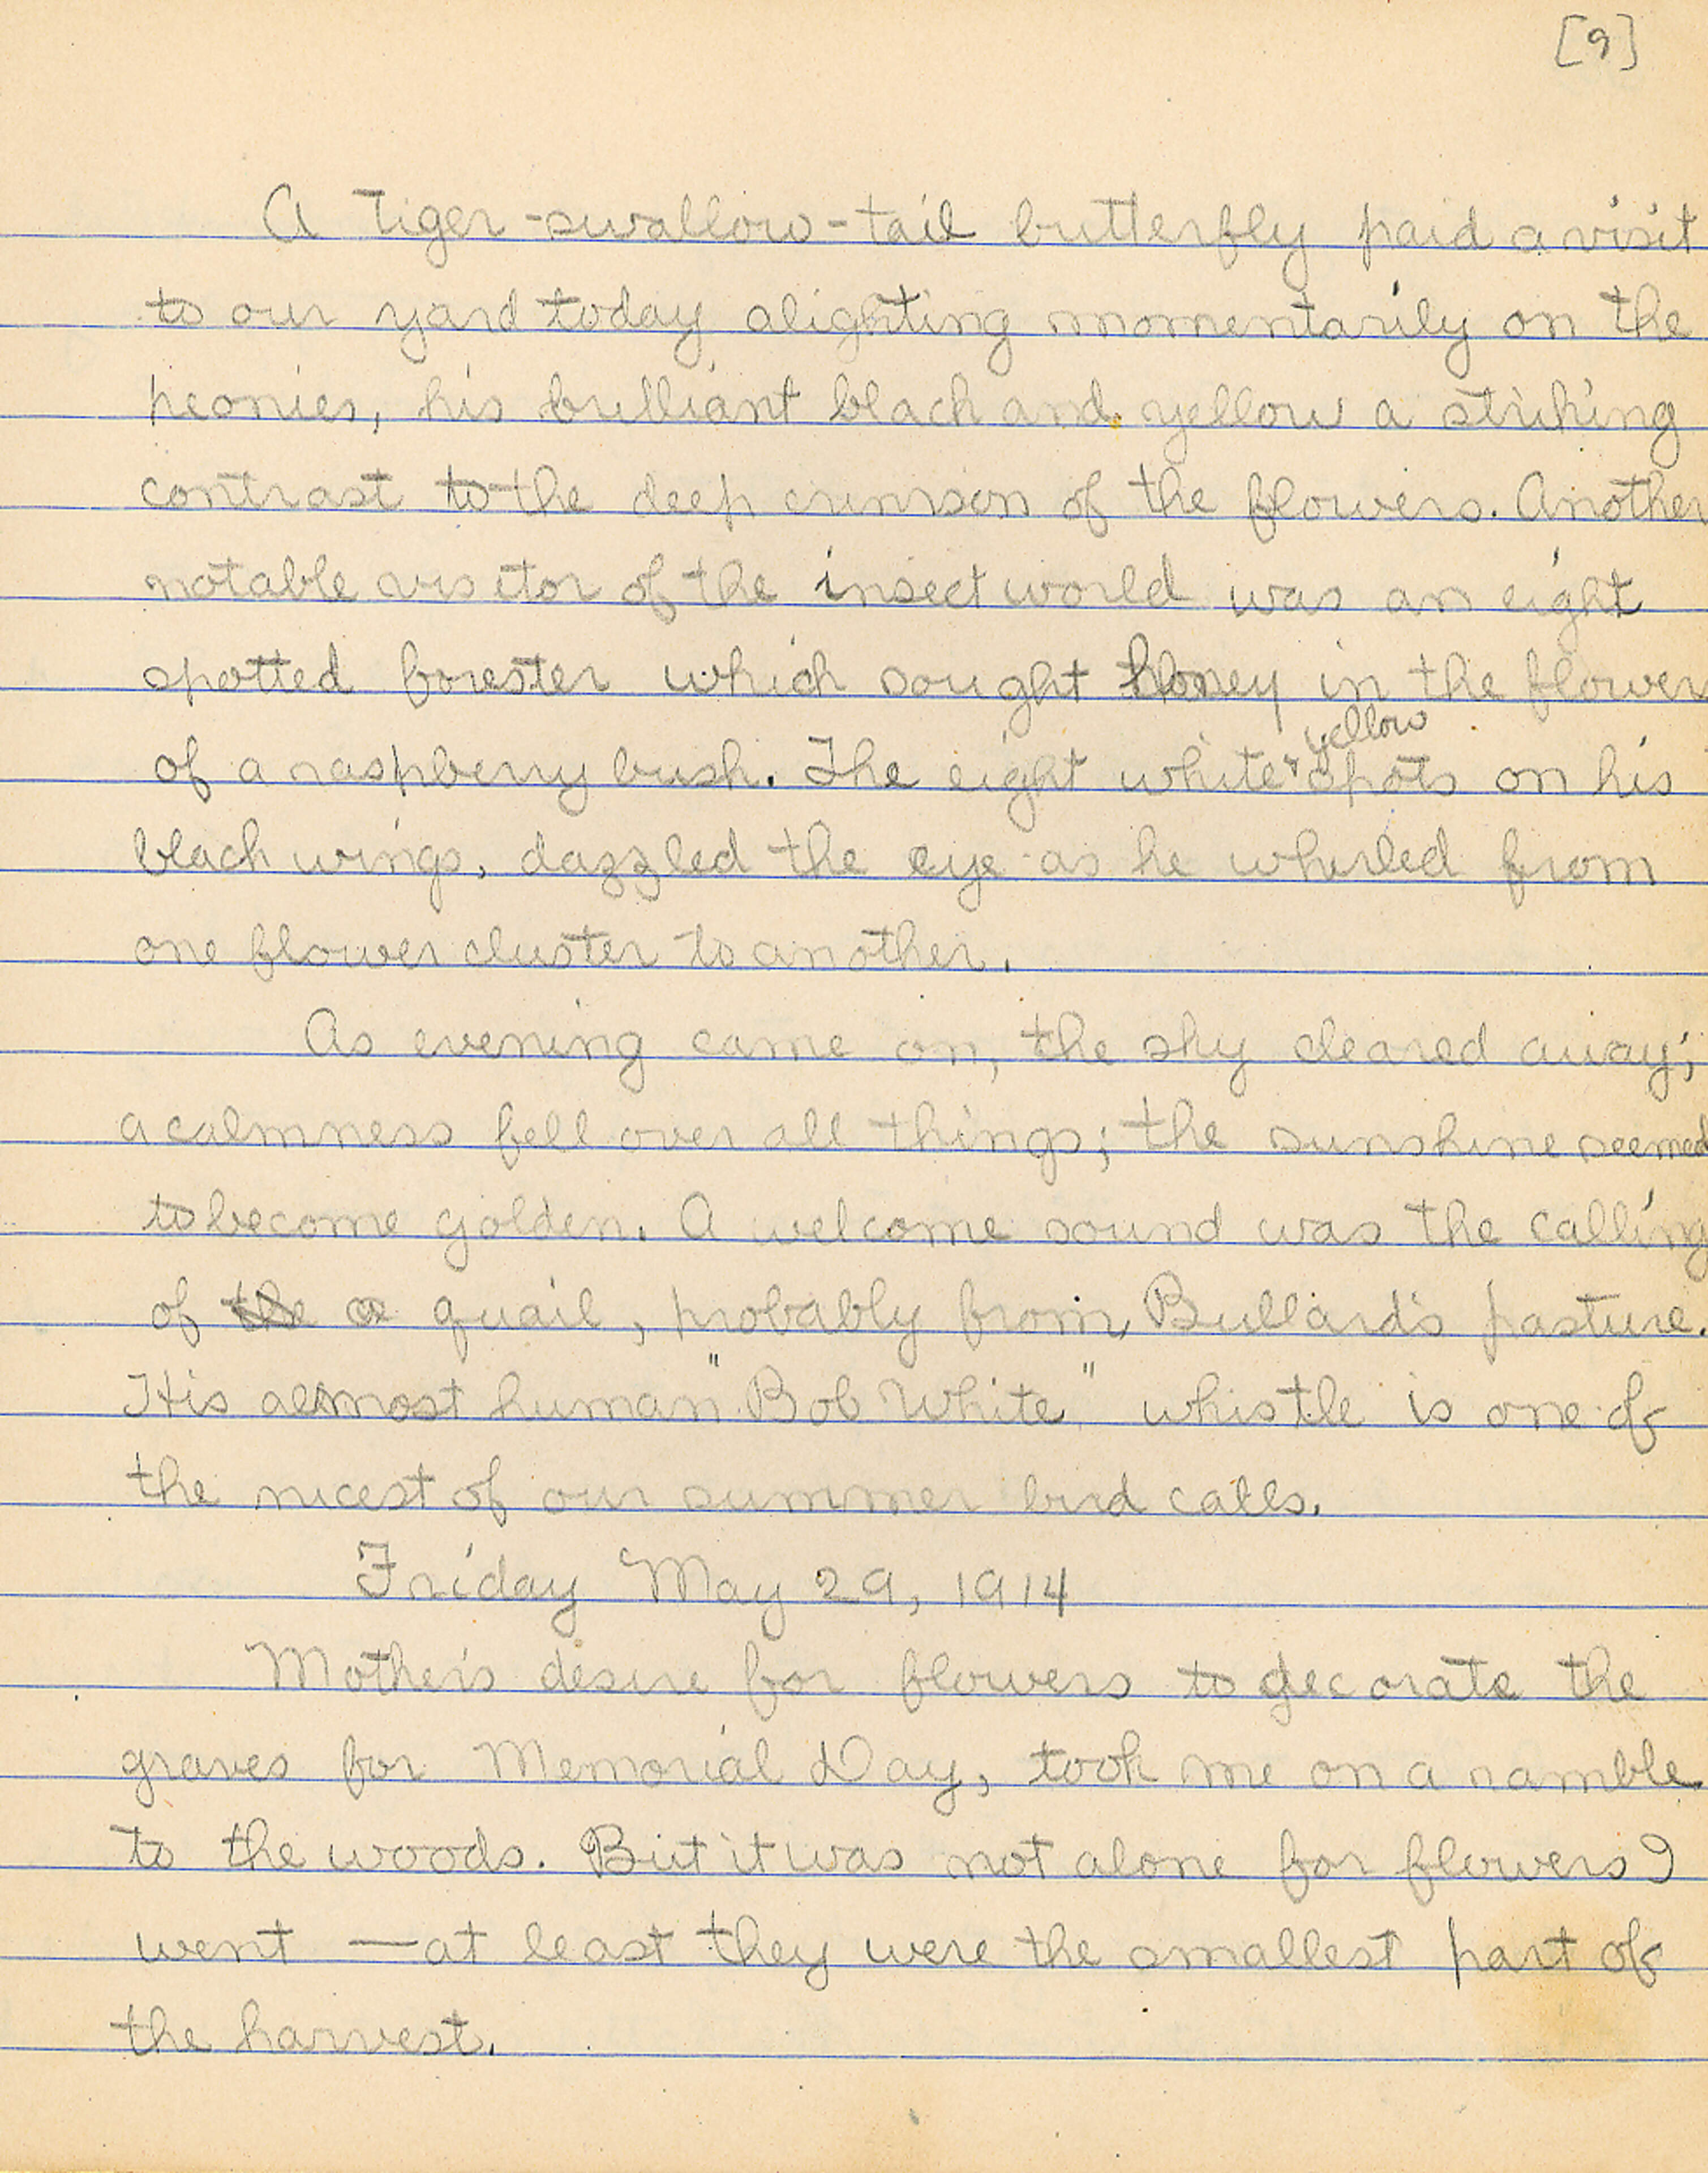 [9]
A Tiger-swallow-tail butterfly paid a visit
to our yard today alighting momentarily on the
peonies, his brilliant black and yellow a striking
contrast to the deep crimson of the flowers. Another
notable visitor of the insect world was an eight
spotted forester which sought honey in the flowers
yellow
of a raspberry bush. The eight white & spots on his
black wings, dazzled the eye as he whirled from
one flower cluster to another.
As evening came on, the sky cleared away;
a calmness fell over all things; the sunshine seemed
to become golden. A welcome sound was the calling
of the a quail, probably from Bullard's pasture.
His almost human "Bob White," whistle is one of
the nicest of our summer bird calls.
Friday May 29, 1914
Mother's desire for flowers to decorate the
graves for Memorial Day, took me on a ramble
to the woods. But it was not alone for flowers I
went — at least they were the smallest part of
the harvest.